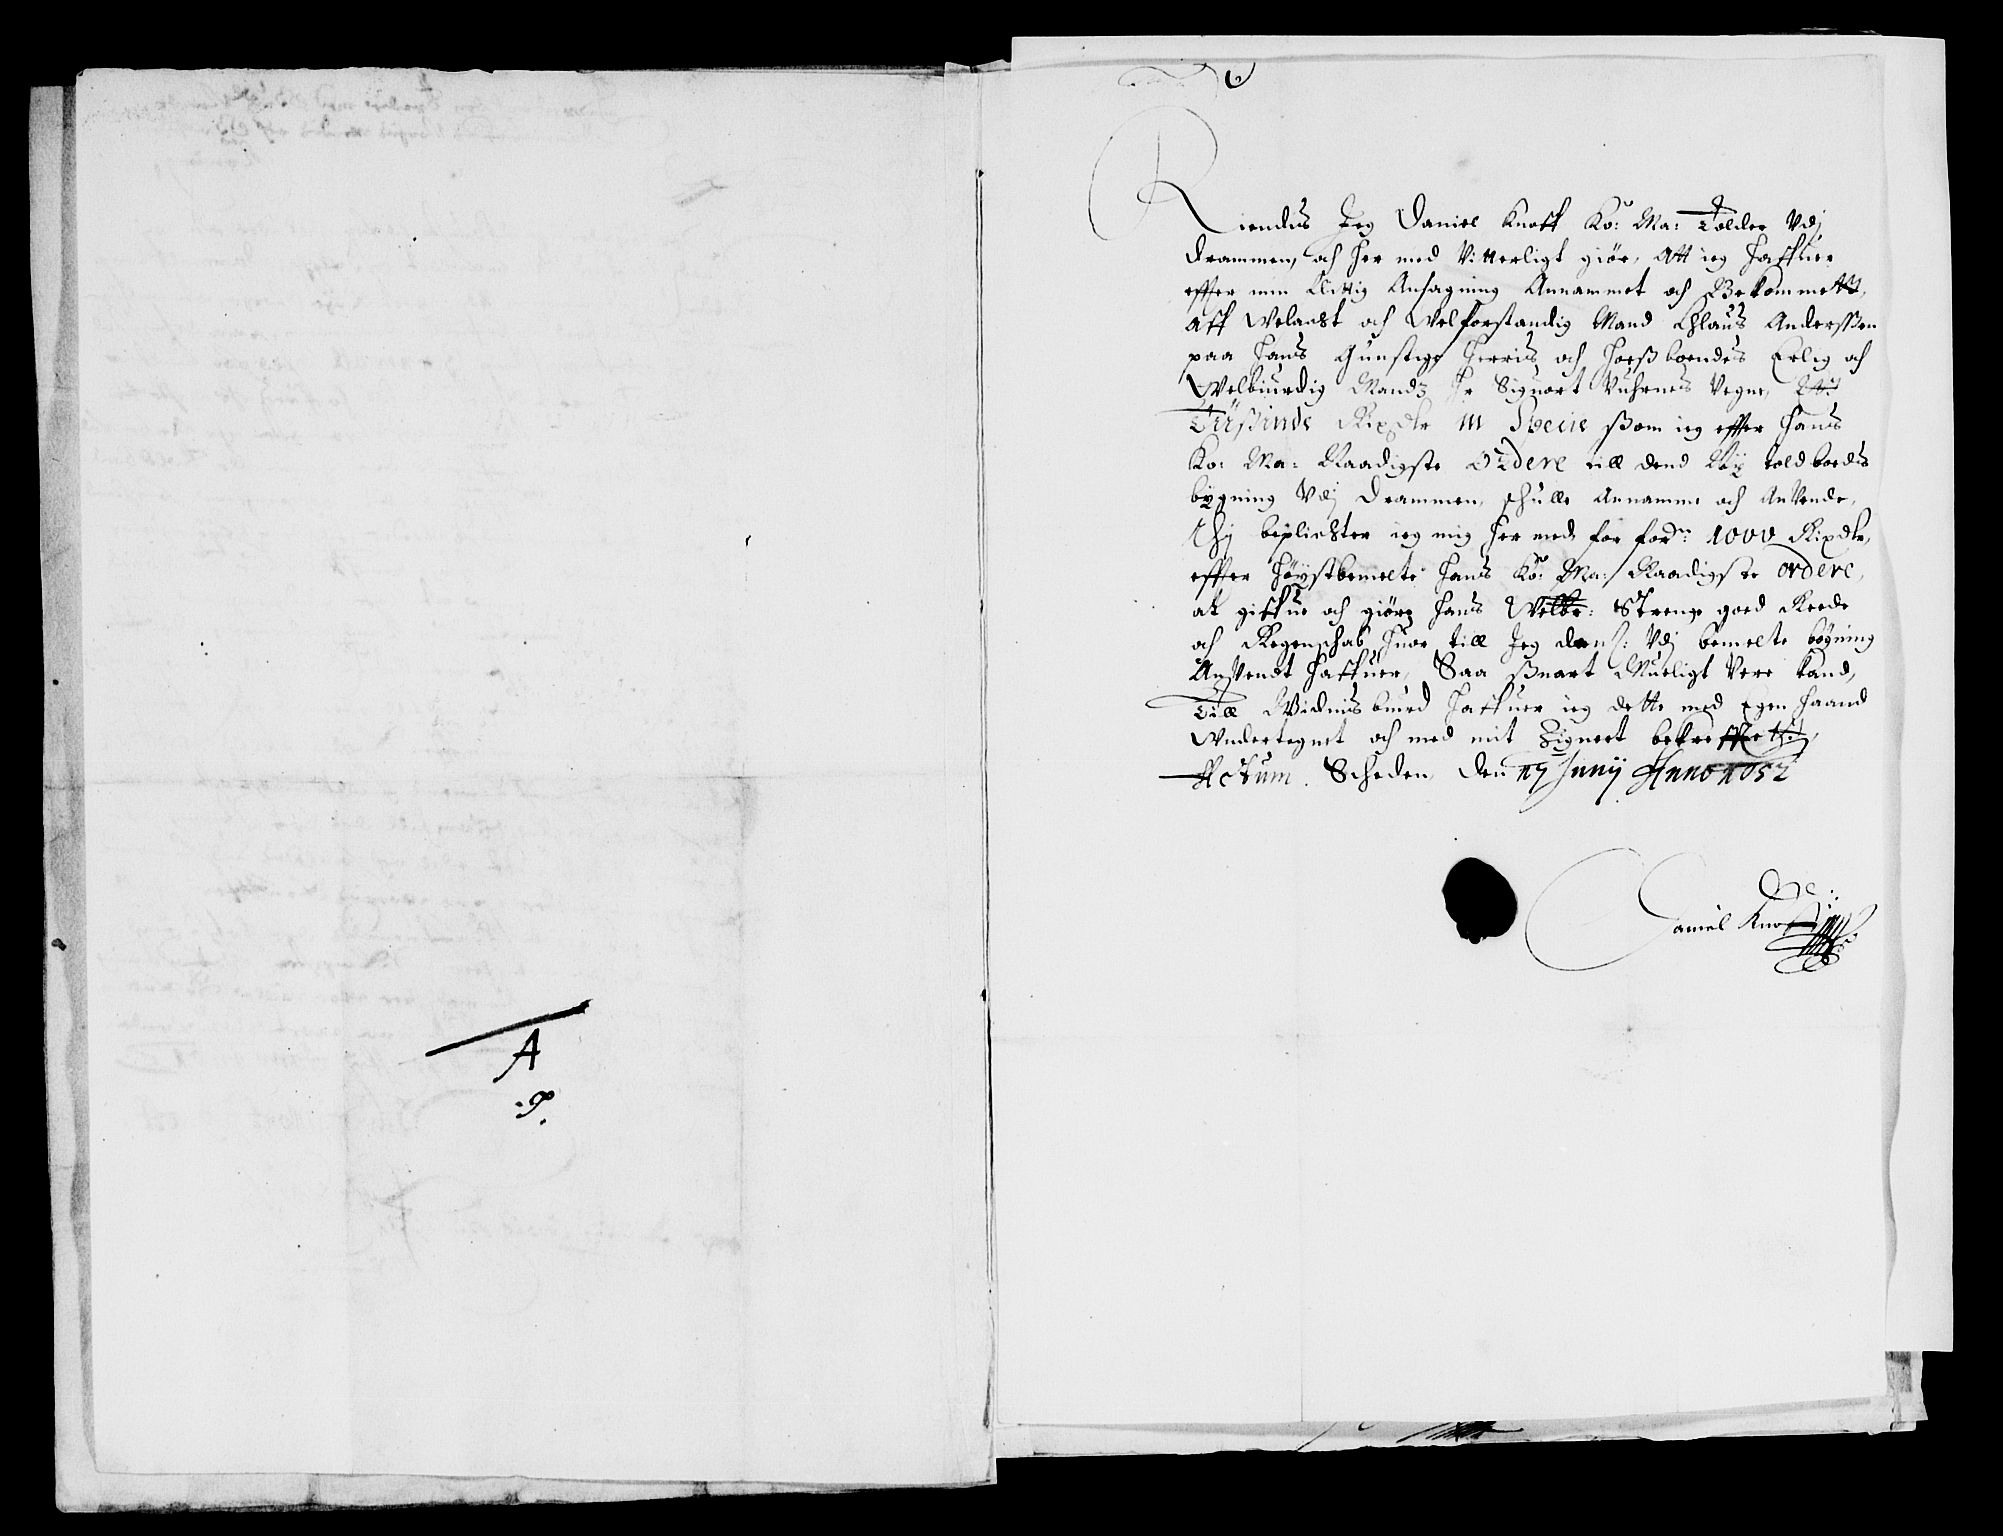 A
.9.
6
Kiendes Jeg Daniel Knoff Ko: Ma: Tolder Vdj
Drammen, och her med Vitterligt giør, Att ieg haffuer
effter min Ansagning Annammet och Bekommett,
aff Welacht och Welforstandig Mand Chlaus Anderssen
paa hans Gunstige Herris och Hoesboendes Erlig och
Welbiurdig Mandz Hr Siguort Vegne,
Tüßinde Rixdlr in Specie ßom ieg effter hans
Ko: Ma: Naadigste Ordere till dend Ny toldboeds
bygning Vdj Drammen, schulle Annamme och AnVende,
Thj beplichter ieg mig her med for forn: 1000 Rixdlr,
effter Høystbemelte hans Ko: Ma: Naadigste ordere,
at giffue och giøre hans Welbr: Strenge goed Reede
och Regenschab huor till Jeg denß: Vdj bemelte bögning
AnVendt haffuer, Saa ßnart Mueligt Vere kand,
Till Widnisbiurd haffuer ieg dette med Egen haand
Vndertegnet och med mit Zignet bekreffted,
Actum. Scheden, den 17 Junij Anno 1652
Daniel Knoff